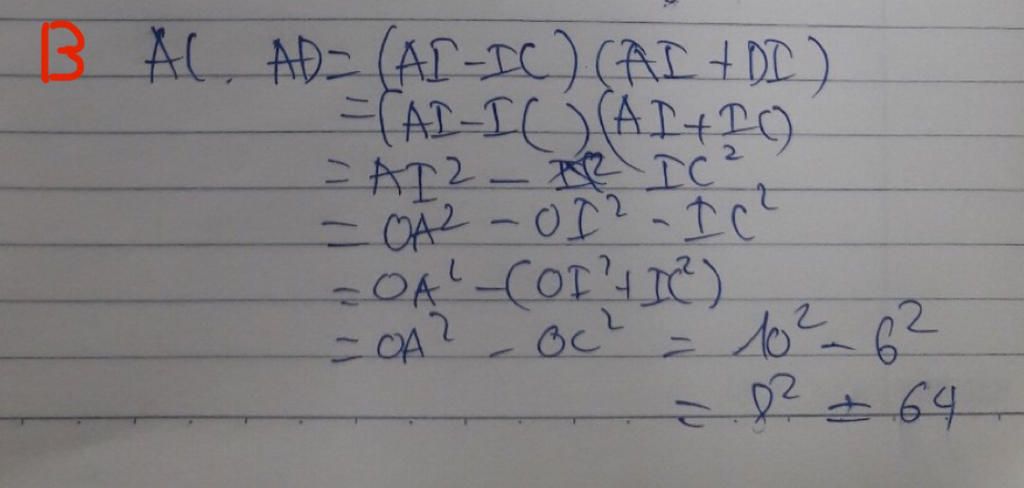 B AC. AD = (AI - IC).(AI + DI)
= (AI - IC)(AI + IC)
= AI² - IC²
= OA² - OI² - IC²
= OA² - (OI² + IC²)
= OA² - OC² = 10² - 6²
= 8² = 64